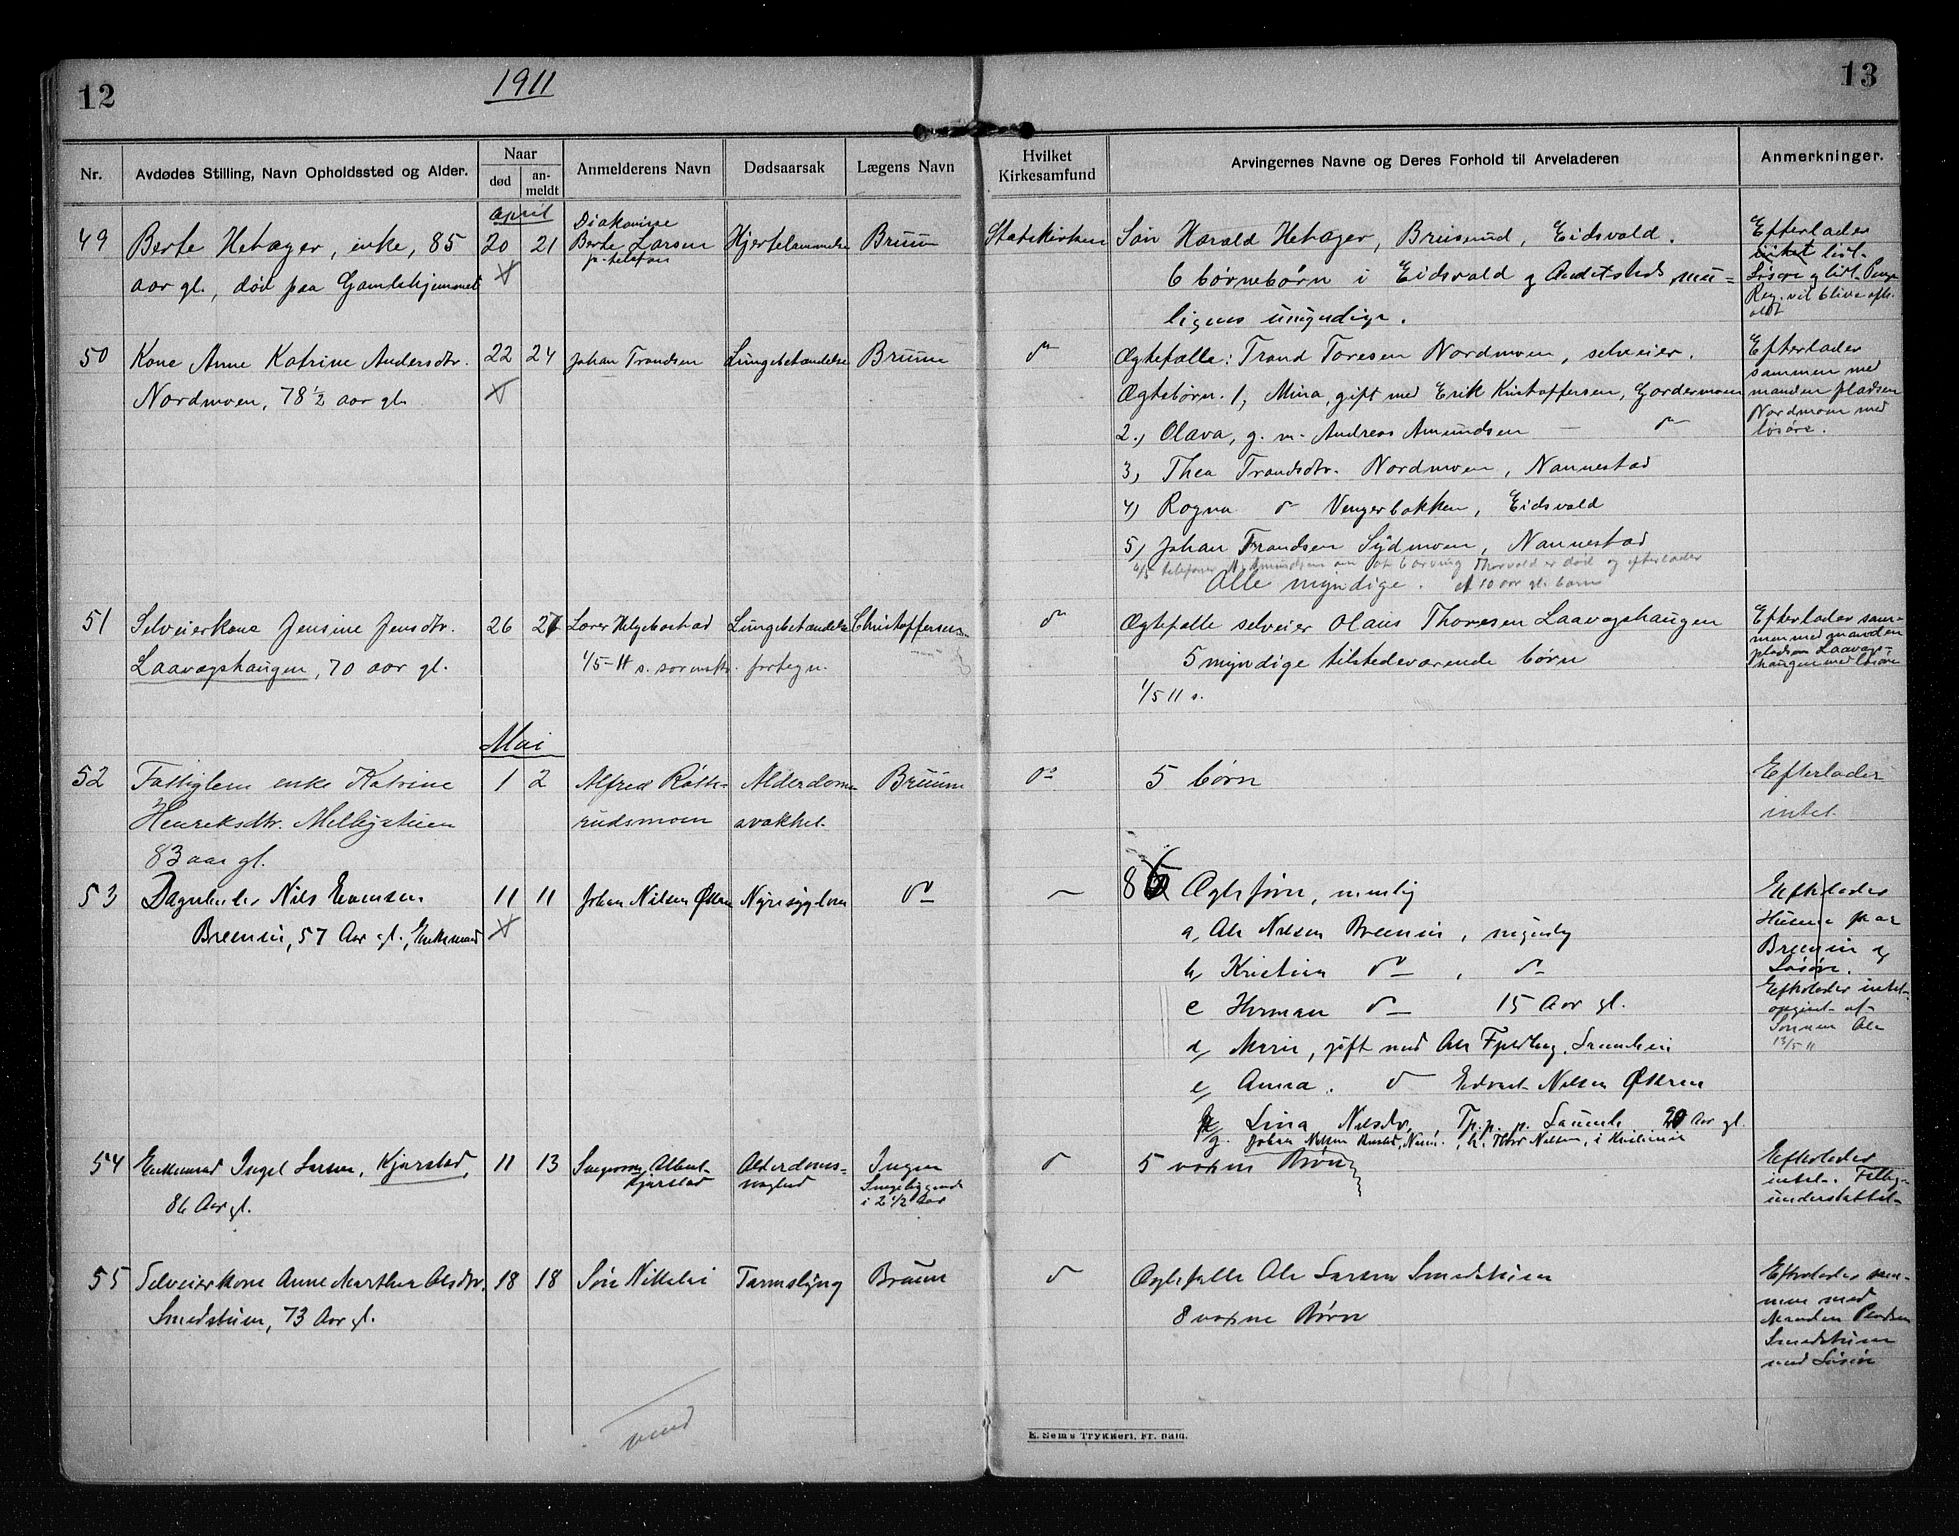 12
1911
13
Nr.
Avdødes Stilling, Navn Opholdssted og Alder.
Naar
død
an-
meldt
Anmelderens Navn
Dødsaarsak
Lægens Navn
Hvilket
Kirkesamfund
Arvingernes Navne og Deres Forhold til Arveladeren
Anmerkninger.
April
49 Berte Hebæger, enke, 85
aar gl., død paa Gamlehjemmet
20 21
Diakonisse
Berte Larsen
pr telefon
Hjertelammelse
Bruun
Statskirken
Søn Harald Hebæger, Brusund, Eidsvald.
6 børnebørn i Eidsvald og Andetsteds mu-
ligens umyndige.
Efterlader
lidt
Løsøre og lidt Penge
50 Kone Anne Katrine Andersdtr.
Nordmoen, 78 1/2 aar gl.
22 24
Johan Trandsen
Lungebetændelse
Bruun
do
Ægtefælle: Trand Toresen Nordmoen, selveier.
Ægtebørn. 1, Mina, gift med Erik Kristoffersen, Gardermoen
2., Olava, g. m. Andreas Amundsen — do
3, Thea Trandsdtr. Nordmoen, Nannestad
4, Ragna do Vengerbakken, Eidsvald
5, Johan Trandsen Sydmoen, Nannestad
Alle myndige.
Efterlader
sammen med
manden pladsen
Nordmoen med
løsøre.
51 Selveierkone Jensine Jensdtr.
Laavægshaugen, 70 aar gl.
26 27
Lærer Helgebostad
Lungebetændelse
Christoffersen
1/5-11 s. sorenskr. fortegn.
do
Ægtefælle selveier Olaus Thoresen Laavægshaugen
5 myndige tilstedeværende børn
1/5 11 s.
Efterlader sam-
men med manden
pladsen Laavægs-
haugen med løsøre
Mai
52 Fattiglem enke Katrine
Henriksdtr.
83 aar gl.
1 2
Alfred
Alderdoms
Bruun
do
5 børn
Efterlader
intet.
53 Dagarbeider Nils Evensen
57 Aar gl., Enkemand
11 11
Johan Nilsen
Nyresygdom
do
8 Ægtebørn, nemlig
a, Ole Nilsen, myndig
b, Kristian do , do
c Herman do 15 Aar gl.
d, Marie, gift med Ole
e, Anna. do Edvart Nilsen
Lina Nilsdtr., 20 Aar gl.
Efterlader
Husene paa
og
Løsøre.
Efterlader intet.
opgivet af
Sønnen Ole
13/5 11
54 Enkemand Ingel Larsen, Kjørstad,
86 Aar gl.
11 13
Kjørstad
Alderdoms-
Ingen
Sengeliggende
i 2 1/2 Aar
do
5 voxne Børn
Efterlader
intet.
understøttet
55 Selveierkone Anne Marthea Olsdtr.
Smedstuen, 73 Aar gl.
18 18
Søn Nikolai
Tarmslyng
Bruun
do
Ægtefælle Ole Larsen Smedstuen
8 voxne Børn
Efterlader sam-
men med
Manden Pladsen
Smedstuen
med Løsøre
vend
E. Sem's Trykkeri, Fr.hald.